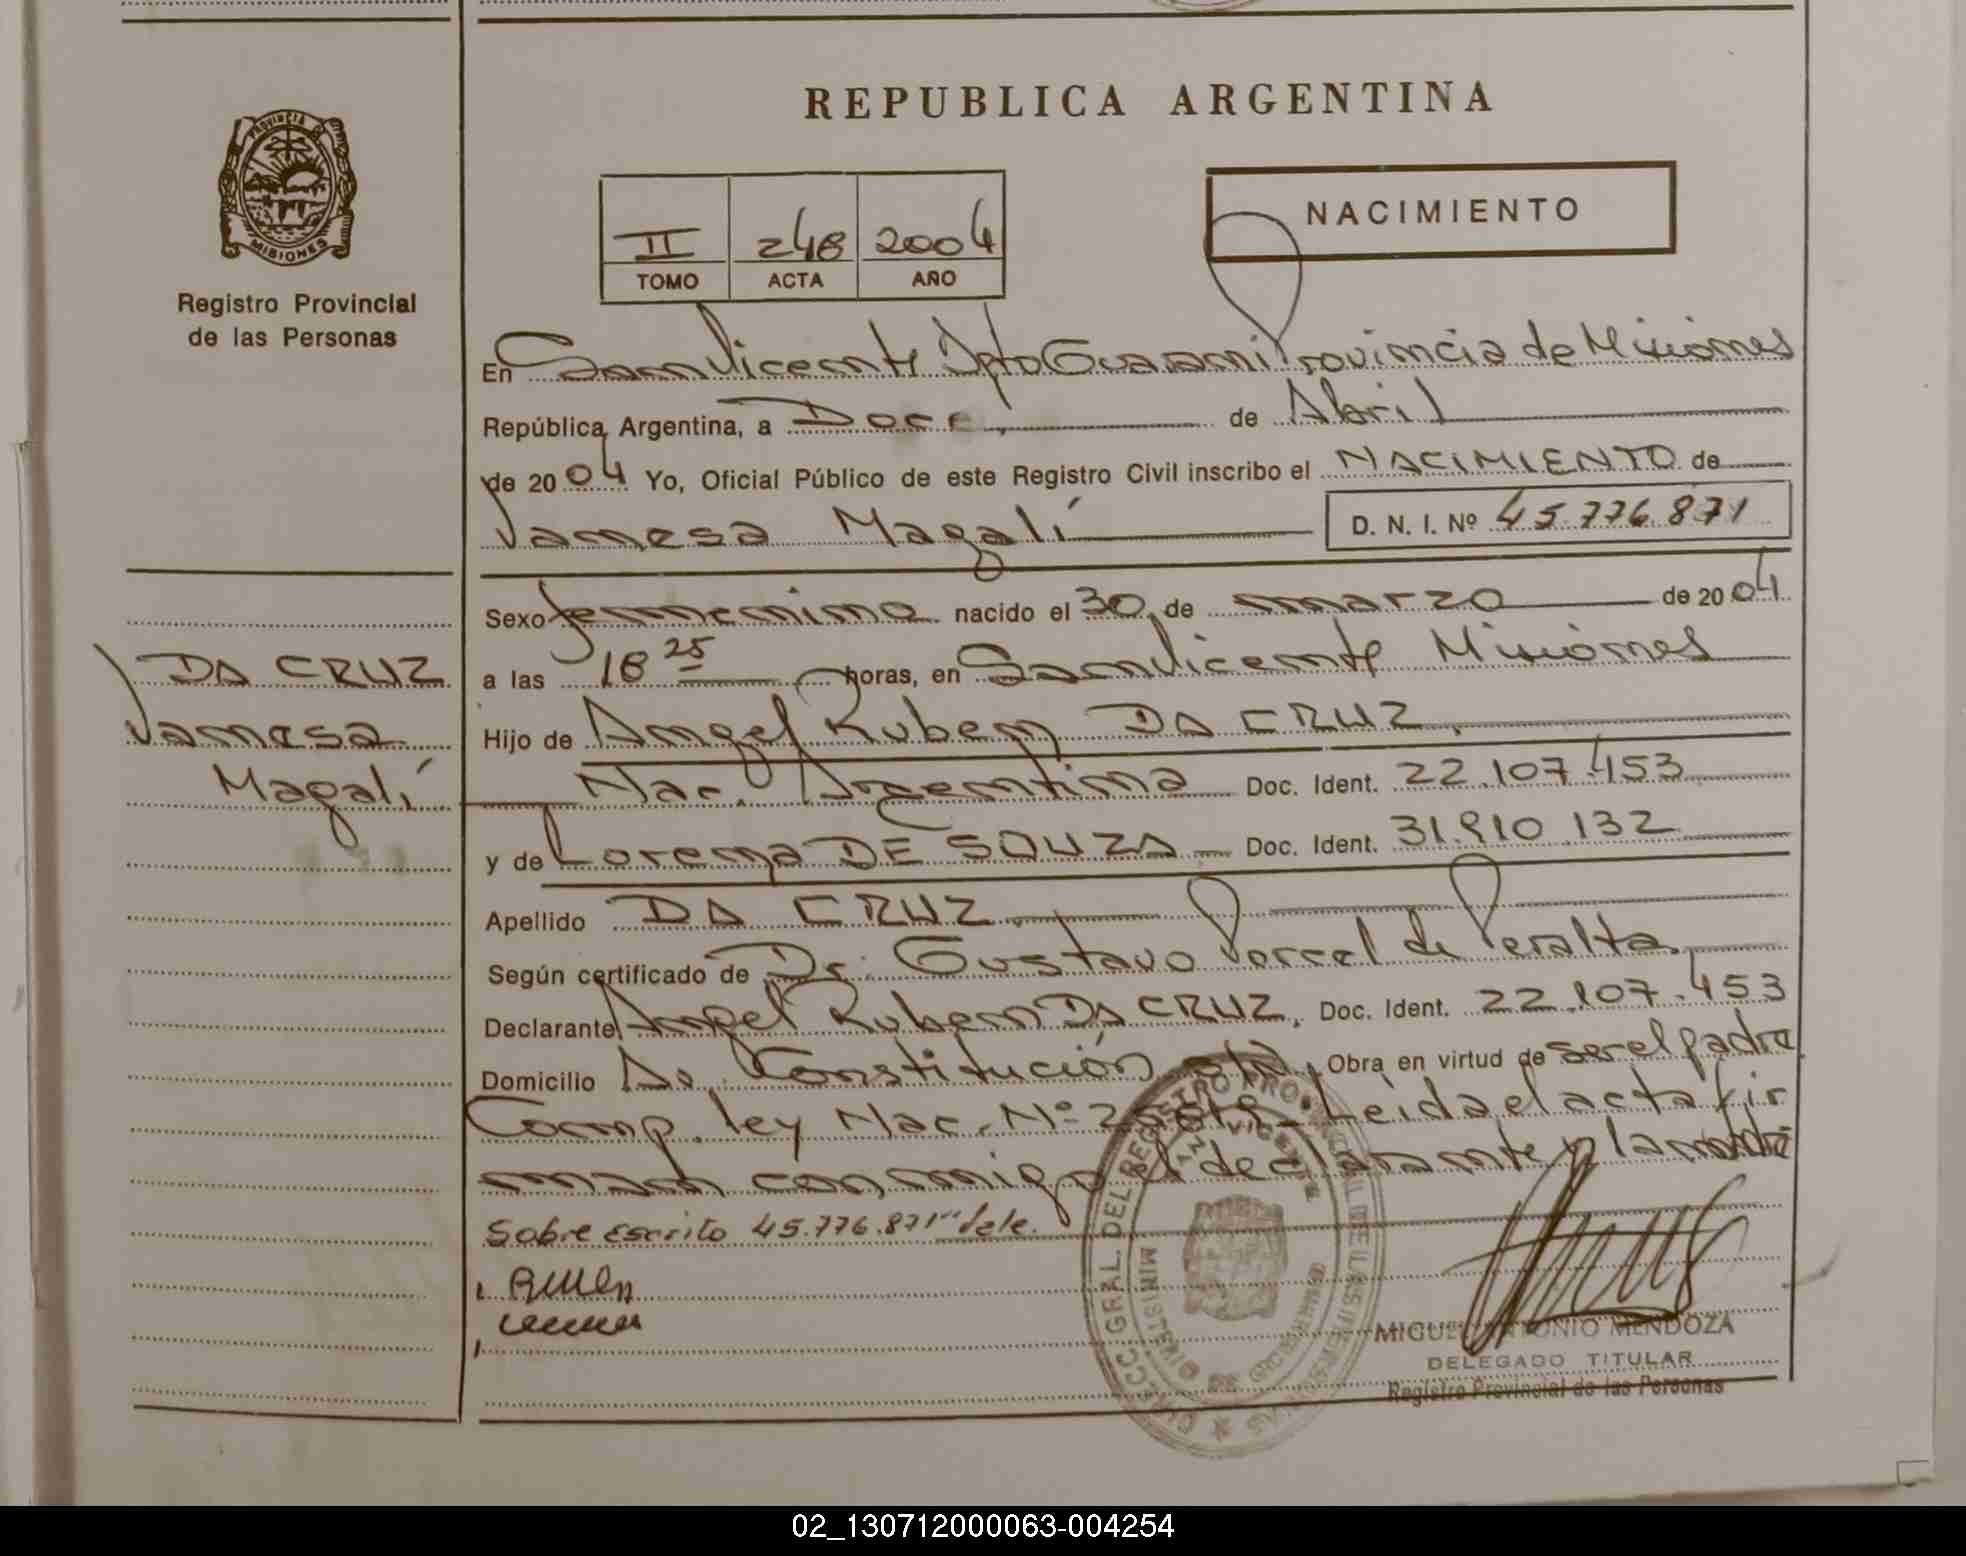 REPUBLICA ARGENTINA
PROVINCIA DE
MISIONES
Registro Provincial
de las Personas
II 248 2004
TOMO ACTA AÑO
NACIMIENTO
En San Vicente Dpto Guaraní Provincia de Misiones
República Argentina, a Doce de Abril
de 2004 Yo, Oficial Público de este Registro Civil inscribo el NACIMIENTO de
Vanesa Magalí D. N. I. Nº 45.776.871
Sexo femenino nacido el 30 de marzo de 2004
DA CRUZ
Vanesa
Magalí
a las 18 25 horas, en San Vicente Misiones
Hijo de Angel Ruben DA CRUZ
Nac. Argentina Doc. Ident. 22.107.453
y de Lorena DE SOUZA Doc. Ident. 31.910.132
Apellido DA CRUZ
Según certificado de Dr. Gustavo Porcel de Peralta
Declarante Angel Ruben DA CRUZ, Doc. Ident. 22.107.453
Domicilio Av. Constitución s/N, Obra en virtud de ser el padre
Comp. ley Nac. Nº Leida el acta fir
man conmigo el declarante y la madre
Sobre escrito 45.776.871 "Vale.
MIGUEL ANTONIO MENDOZA
DELEGADO TITULAR
Registro Provincial de las Personas
02_130712000063-004254